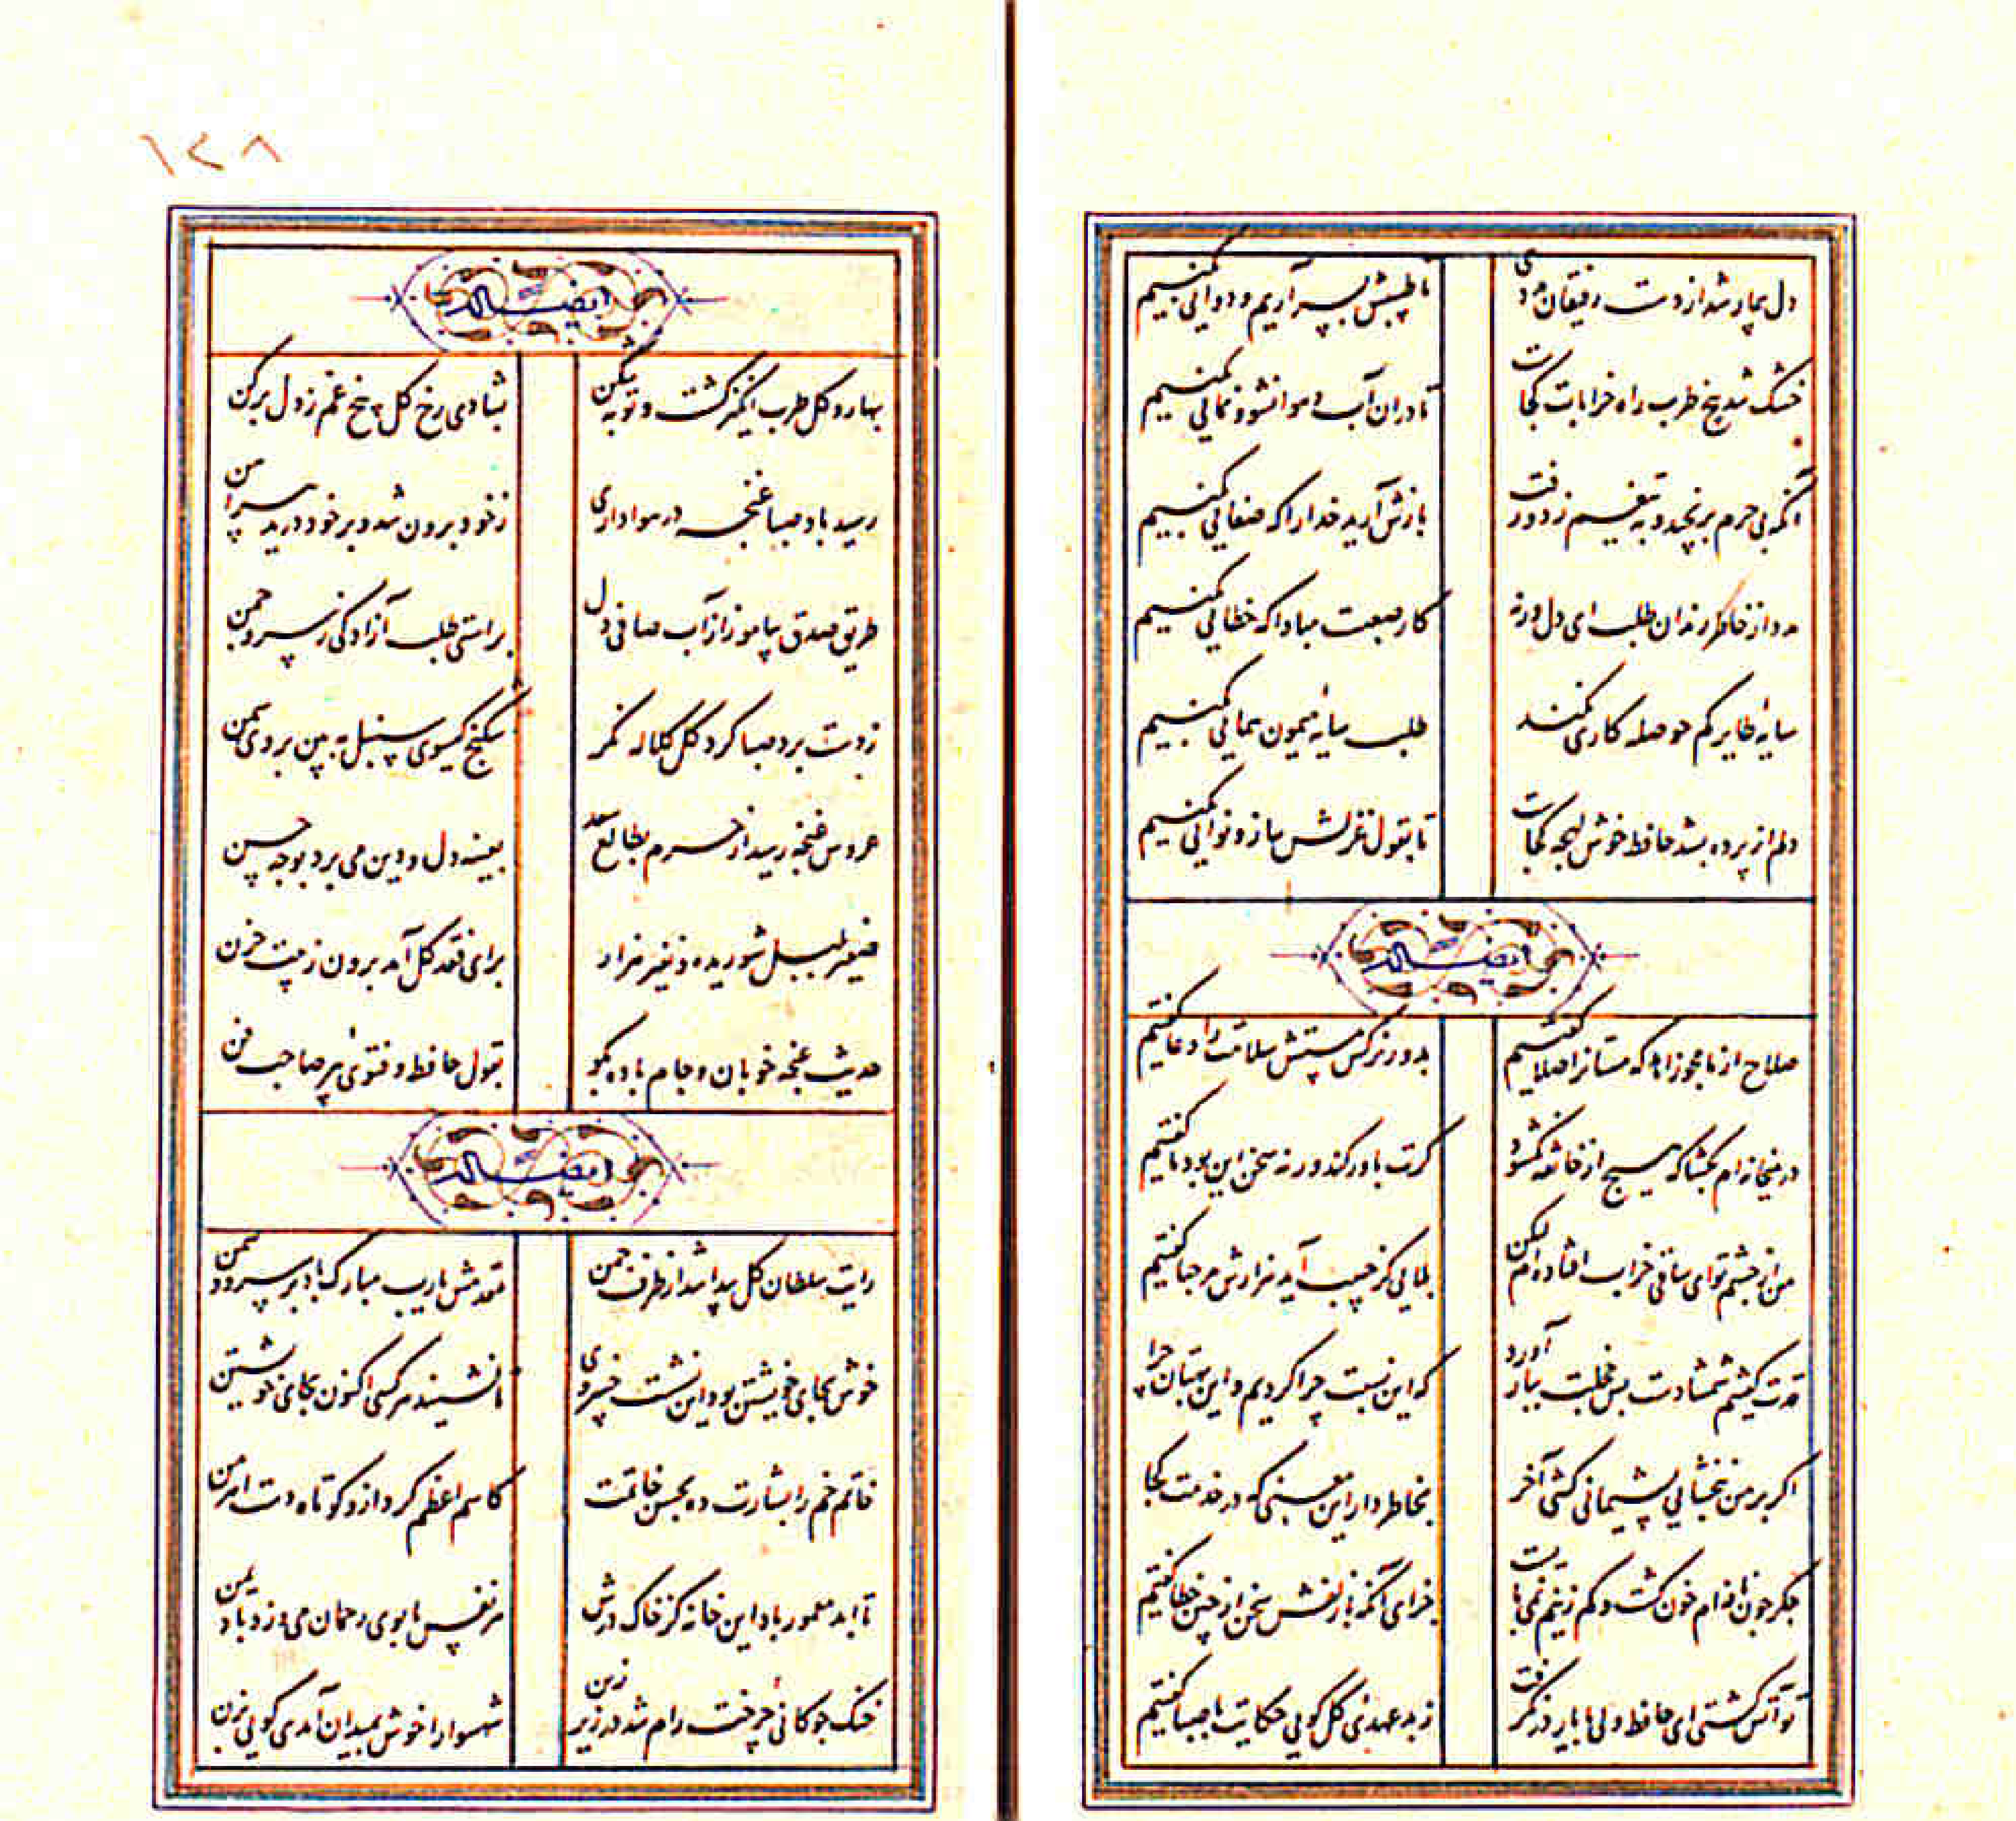 دل بیمار شد از دست رفیقان مددی
تا طبیبش بسر آریم و دوایی بکنیم
خشک شد بیخ طرب راه خرابات کجاست
تا در ان آب و هوا نشو و نمایی بکنیم
آنکه بی جرم برنجید و به تیغم زد و رفت
بازش آرید خدا را که صفایی بکنیم
مدد از خاطر رندان طلب ای دل ورنه
کار صعبست مبادا که خطایی بکنیم
سایهٔ طایر کم حوصله کاری نکند
طلب سایهٔ میمون همایی بکنیم
دلم از پرده بشد حافظ خوش لهجه کجاست
تا بقول غزلش ساز و نوایی بکنیم
ایضا له
صلاح از ما چه میجویی که مستانرا صلا گفتیم
بدور نرکس مستش سلامت را دعا گفتیم
در میخانه ام بکشا که هیچ از خانقه نکشود
کرت باور کند ورنه سخن این بود ما گفتیم
من از چشم توای ساقی خراب افتاده ام لیکن
بلایی کز حبیب آید هزارش مرحبا گفتیم
قدت گفتیم شمشادست بس خجلت ببار آورد
که این نسبت چرا کردیم و این بهتان چرا
اکر بر من نبخشایی پشیمانی کشی آخر
بخاطر دار این معنی که در خدمت کجا
جکر چون نافه ام خون کشت و کم زینم نمی بایست
جزای آنکه با زلفش سخن از چین خطا گفتیم
تو آتش کشتی ای حافظ ولی با یار در نکرفت
ز بد عهدی کل کویی حکایت با صبا گفتیم
۱۲۸
ایضا له
بهار و کل طرب انکیز کشت و توبه شکن
بشادی رخ کل بیخ غم ز دل برکن
رسید باد صبا غنچه در هواداری
ز خود برون شد و بر خود درید پیراهن
طریق صدق بیاموز از آب صافی دل
براستی طلب آزادکی ز سرو چمن
ز دست برد صبا کرد کل کلاله نکر
شکنج کیسوی سنبل به بین بروی سمن
عروس غنچه رسید از حرم بطالع سعد
بعینه دل و دین می برد بوجه حسن
صفیر بلبل شوریده و نفیر هزار
برای نقد کل آمد برون ز بیت حزن
حدیث غنچه خوبان و جام باده بکو
بقول حافظ و فتوی پیر صاحب فن
ایضا له
رایت سلطان کل پیدا شد از طرف چمن
مقدمش یارب مبارک باد بر سرو و سمن
خوش بجای خویشتن بود این نشست خسروی
تا نشیند هر کسی اکنون بجای خویشتن
خاتم جم را بشارت ده بحسن خاتمت
کاسم اعظم کرد ازو کوتاه دست اهرمن
تا ابد معمور باد این خانه کز خاک درش
هر نفس با بوی رحمان می وزد باد یمن
خنک چوکانی چرخت رام شد در زیر زین
شهسوارا خوش بمیدان آمدی کویی بزن